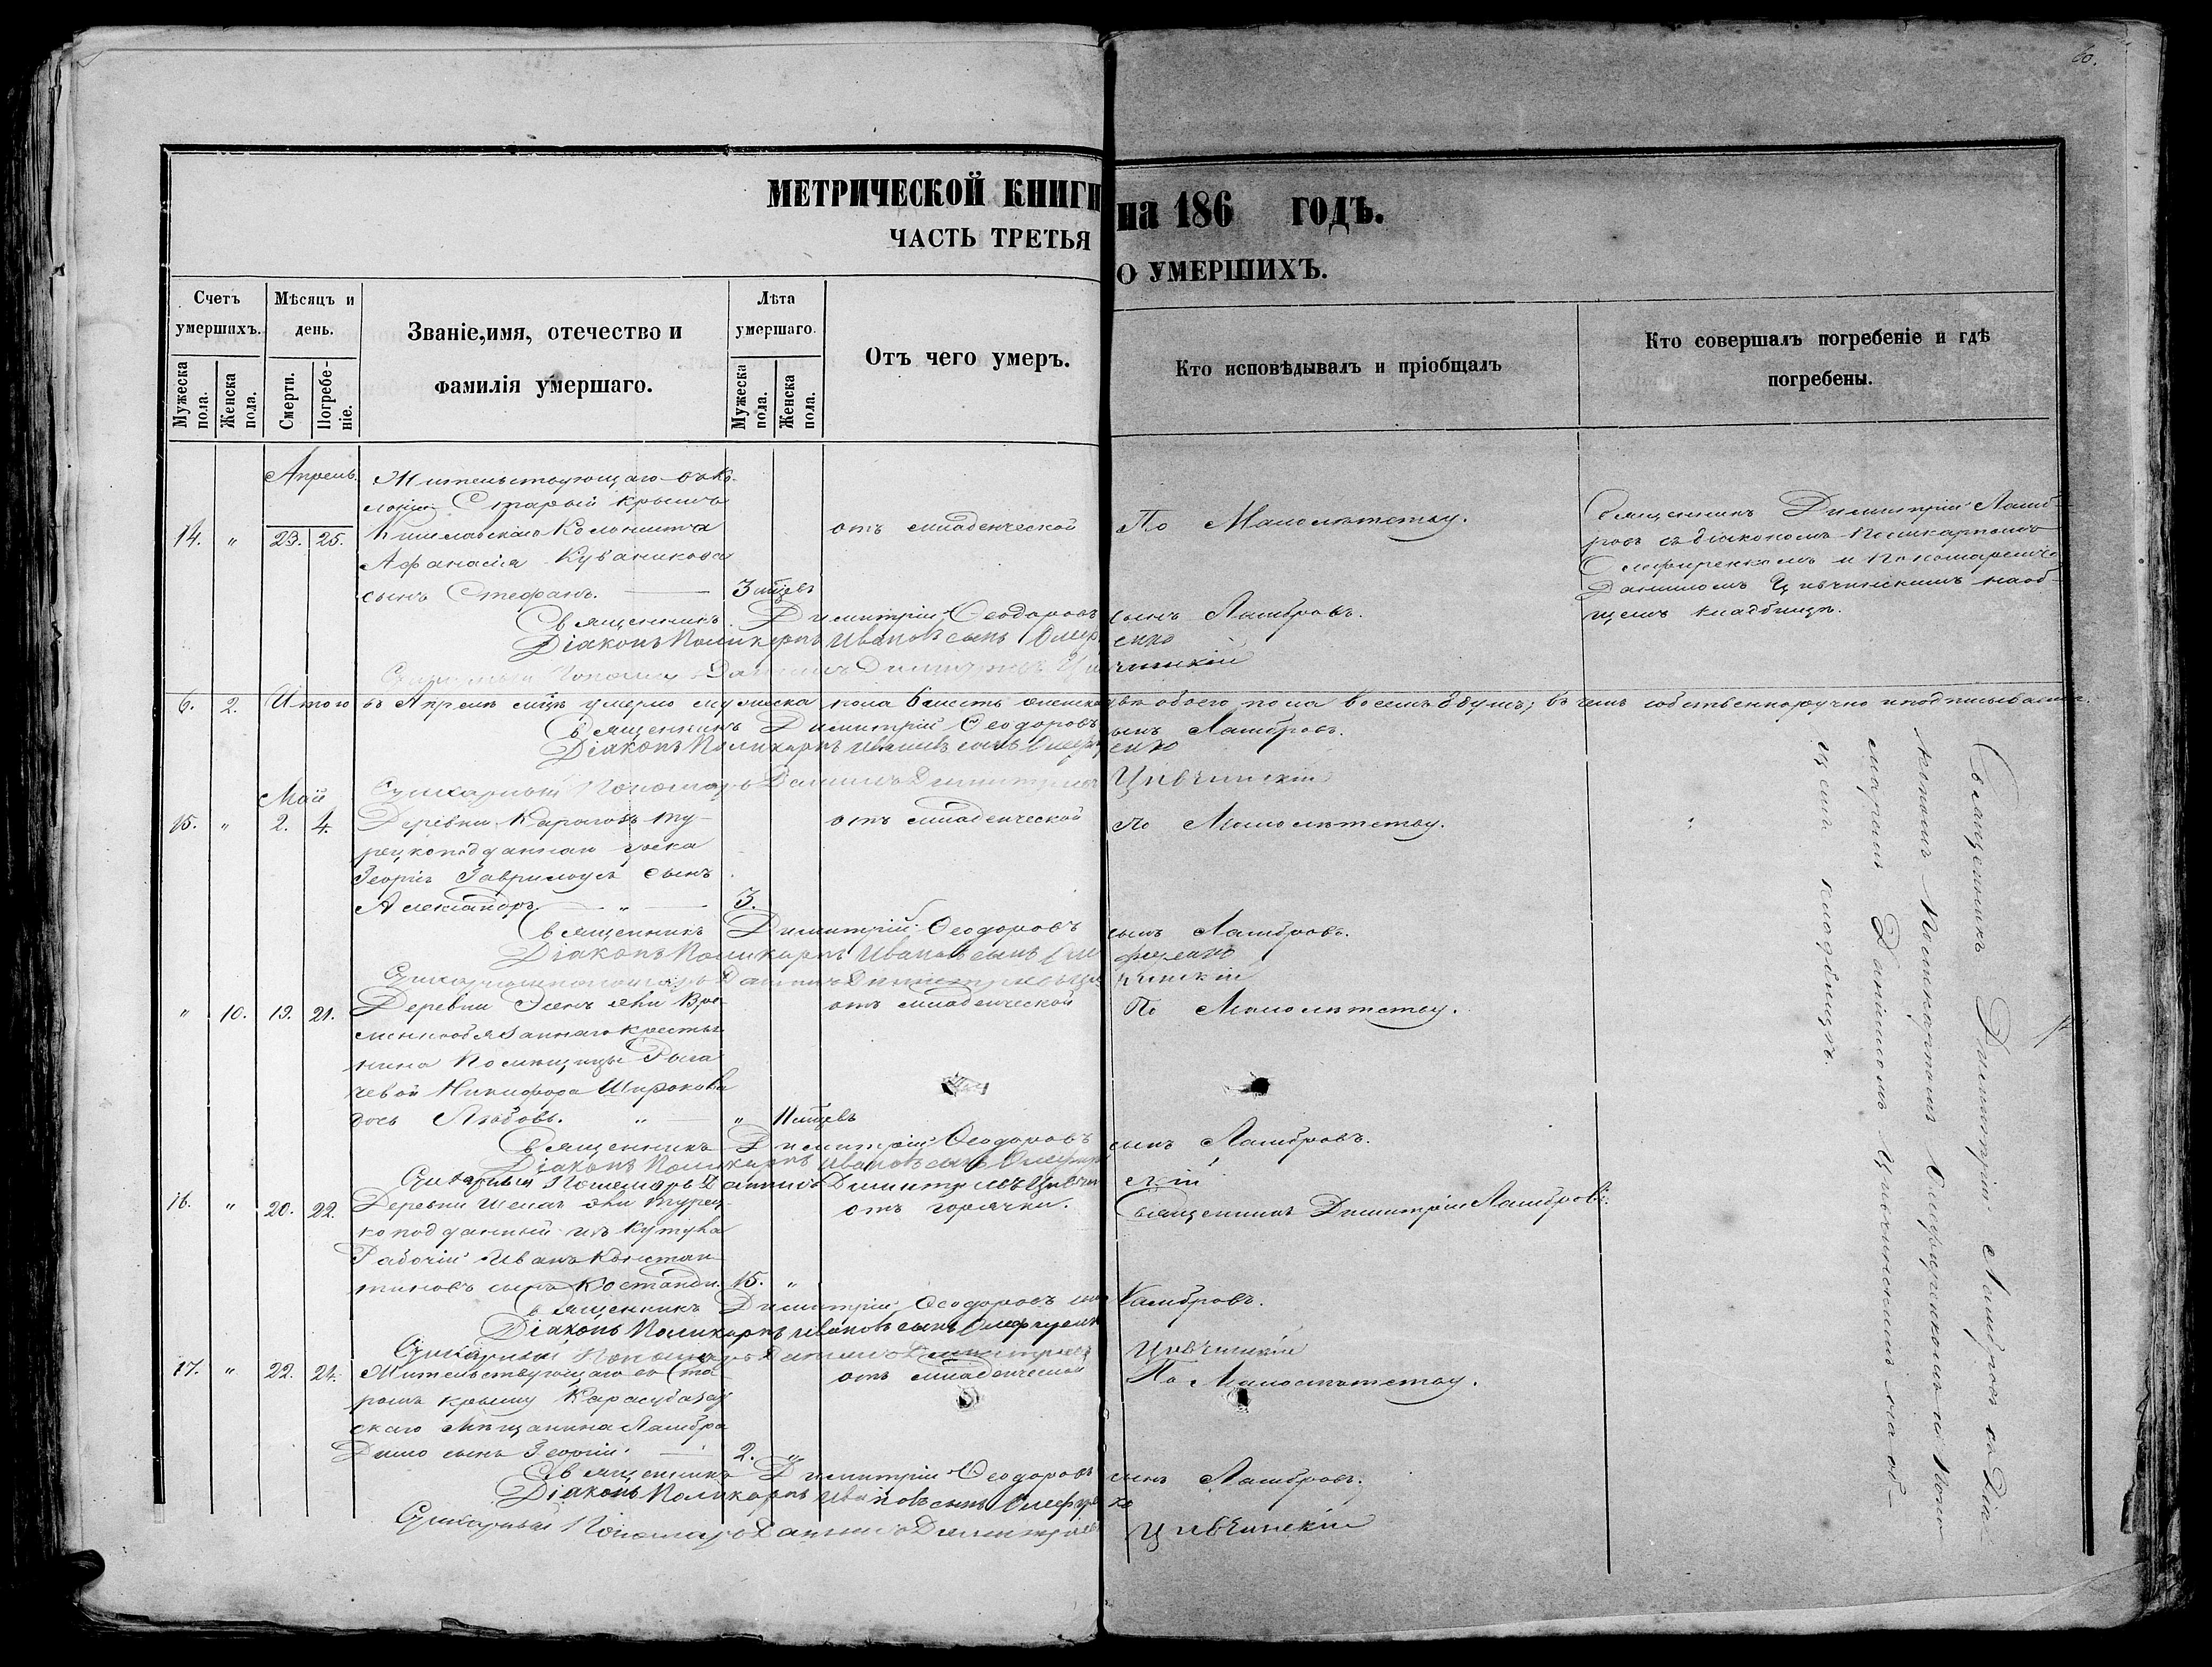 60.
МЕТРИЧЕСКОЙ КНИГИ на 186 ГОДЪ.
ЧАСТЬ ТРЕТЬЯ
О УМЕРШИХЪ.
Счетъ умершихъ.
Мужеска пола.
Женска пола.
Мѣсяцъ и день.
Смерти.
Погребе-
ніе.
Званіе, имя, отечество и
фамилія умершаго.
Лѣта умершаго.
Мужеска пола.
Женска пола.
Отъ чего умеръ.
Кто исповѣдывалъ и пріобщалъ
Кто совершалъ погребеніе и гдѣ
погребены.
Апрель.
14. " 23. 25.
Жительствующаго въ ко-
лоніи Старый Крымъ
Кишлавскаго Колониста
Афанасія Куваникова
сынъ Стефанъ. 3 мѣцевъ
отъ младенческой
По Малолѣтству.
Священникъ Димитрій Ламб-
ровъ съ діакономъ Поликарпомъ
и Пономаремъ
Даниломъ Цивчинскимъ на об-
щемъ кладбищѣ.
Священникъ Димитрій Ѳеодоровъ сынъ Ламбровъ.
Діаконъ Поликарпъ Ивановъ сынъ
Пономарь Данилъ Цивчинскій
6. 2. Итого въ Апрелѣ мцѣ умерло мужеска пола 6 шесть женска двѣ обоего пола восемь душъ; въ чемъ собственноручно и подписываемся.
Священникъ Димитрій Ѳеодоровъ сынъ Ламбровъ.
Діаконъ Поликарпъ Ивановъ сынъ
Пономарь Данилъ Димитріевъ Цивчинскій
Май
15. " 2. 4.
Деревни Карагозъ ту-
рецкоподданнаго грека
Георгія сынъ
Александръ. " 3.
отъ младенческой
По Малолѣтству.
Священникъ Димитрій Ламбровъ съ Діа-
кономъ Поликарпомъ и Поно-
маремъ Даниломъ Цивчинскимъ на об-
щемъ кладбищѣ.
Священникъ Димитрій Ѳеодоровъ сынъ Ламбровъ.
Діаконъ Поликарпъ Ивановъ сынъ
Данилъ Димитріевъ Цивчинскій
" 10. 19. 21.
Деревни Вре-
меннообязаннаго крестья-
нина Помѣщицы
Никифора Широкова
дочь Любовь. " " 11 мѣцевъ
отъ младенческой
По Малолѣтству.
Священникъ Димитрій Ѳеодоровъ сынъ Ламбровъ.
Діаконъ Поликарпъ Ивановъ сынъ
Пономарь Данилъ Димитріевъ
16. " 20. 22.
Деревни турец-
коподданный изъ
Рабочій Иванъ Констан-
тиновъ сынъ Костанди. 15. "
отъ горячки.
Священникъ Димитрій Ламбровъ.
Священникъ Димитрій Ѳеодоровъ сынъ Ламбровъ.
Діаконъ Поликарпъ Ивановъ сынъ
Пономарь Данилъ Димитріевъ Цивчинскій
17. " 22. 24.
Жительствующаго въ Ста-
ромъ Крыму Карасубазар-
скаго Мѣщанина Ламбра
Димо сынъ Георгій. 2. "
отъ младенческой
По Малолѣтству.
Священникъ Димитрій Ѳеодоровъ сынъ Ламбровъ.
Діаконъ Поликарпъ Ивановъ сынъ
Пономарь Данилъ Димитріевъ Цивчинскій